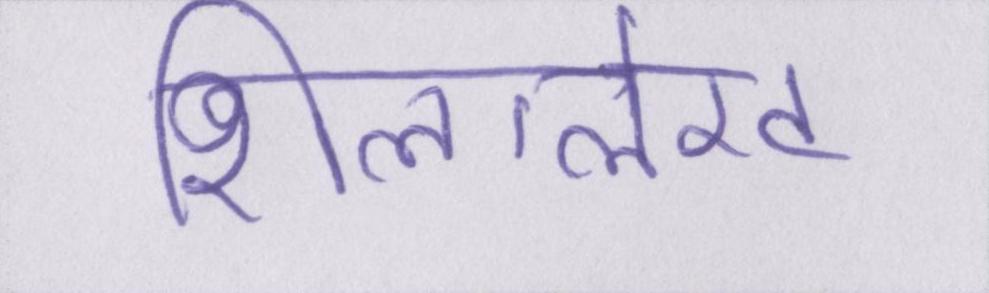 शिलालेख